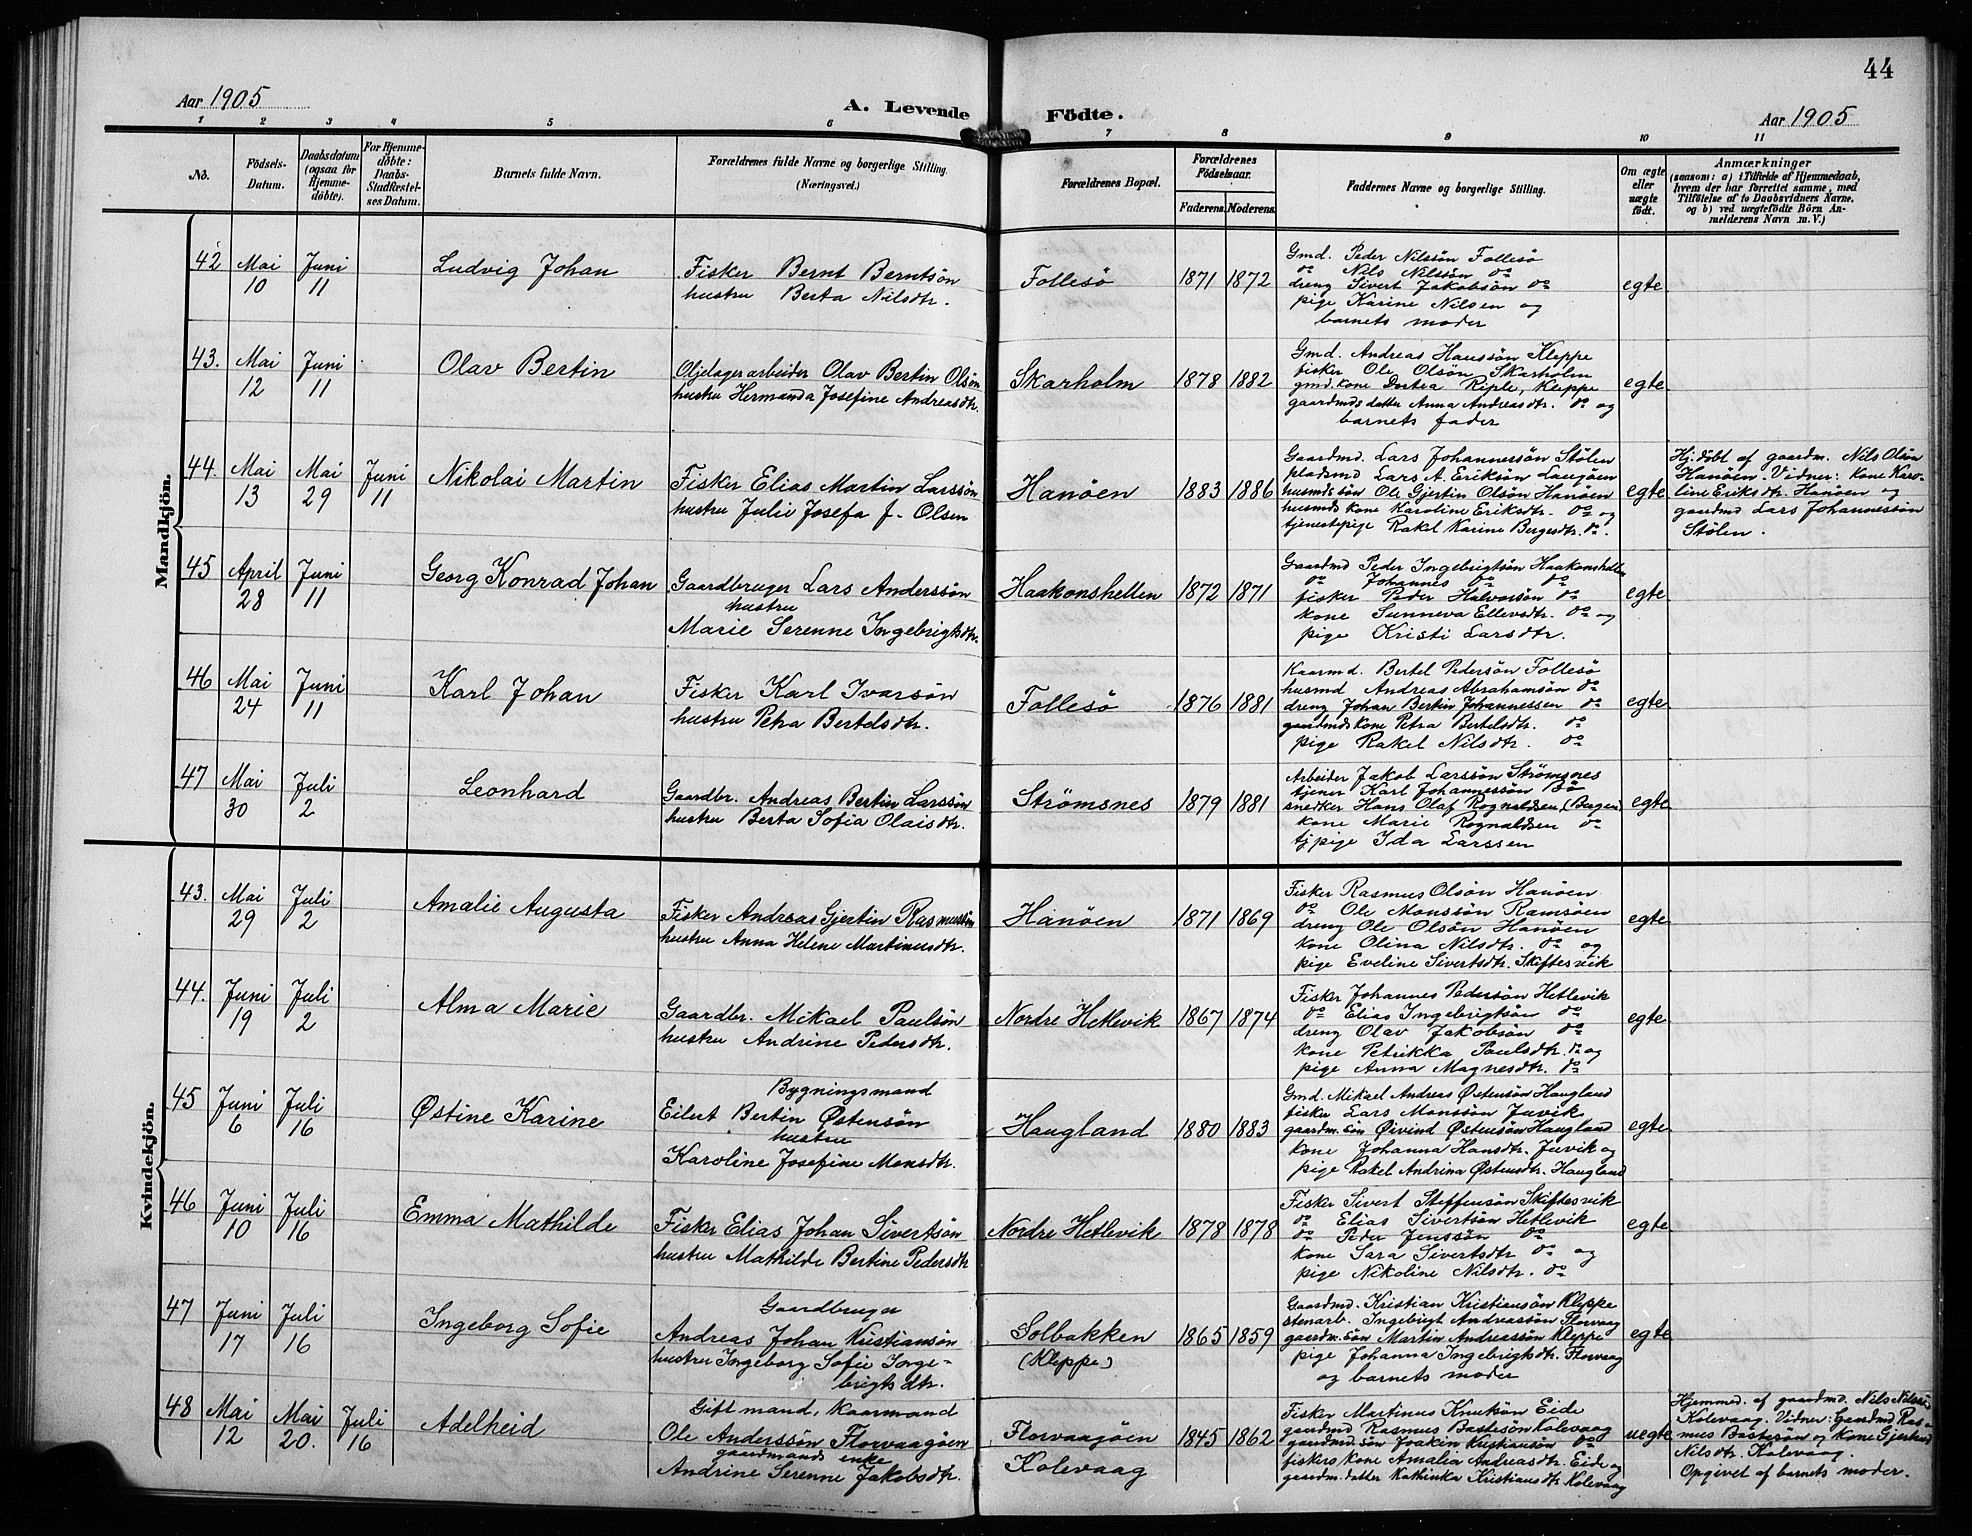 44
Aar 1905
A. Levende Födte.
Aar 1905
1 2 3 4 5 6 7 8 9 10 11
No.
Födsels-Datum.
Daabsdatum (ogsaa for Hjemme-døbte).
For Hjemme-døbte: Daabs-Stadfæstel-ses Datum.
Barnets fulde Navn.
Forældrenes fulde Navne og borgerlige Stilling.
(Næringsvei.)
Forældrenes Bopæl.
Forældrenes Födselsaar.
Faderens. Moderens.
Faddernes Navne og borgerlige Stilling.
Om ægte eller uægte födt.
Anmærkninger
(saasom: a) i Tilfælde af Hjemmedaab,
hvem der har forrettet samme, med
Tilföielse af to Daabsvidners Navne,
og b) ved uægtefödte Börn An-
melderens Navn m. V.)
Mandkjön.
42 Mai 10 Juni 11 Ludvig Johan
Fisker Bernt Berntsön
hustru Berta Nilsdtr.
Follesö 1871 1872
Gmd. Peder Nilssön Follesö
do Nils Nilssön do
dreng Sivert Jakobsön do
pige Karine Nilsen og
barnets moder
egte
43. Mai 12 Juni 11 Olav Bertin
Oljelagerarbeider Olav Bertin Olsön
hustru Hermanda Josefine Andreasdtr.
Skarholm 1878 1882
Gmd. Andreas Hanssön Kleppe
fisker Ole Olsön Skarholm
gmd. kone Dortea Riple, Kleppe
gaardmds datter Anna Andreasdtr. do og
barnets fader
egte
44. Mai 13 Mai 29 Juni 11 Nikolai Martin
Fisker Elias Martin Larssön
hustru Julie Josefa f. Olsen
Hanöen 1883 1886
Gaardmd. Lars Johannessön Stölen
pladsmd Lars A. Eriksön
husmds sön Ole Gjertin Olsön Hanöen
husmds kone Karoline Eriksdtr. do og
tjenestepige Rakel Karine Bergesdtr. do.
egte
Hj.döbt af gaardm. Nils Olsön
Hanöen. Vidner: kone Karo-
line Eriksdtr. Hanöen og
gaardmd Lars Johannessön
Stölen.
45 April 28 Juni 11 Georg Konrad Johan
Gaardbruger Lars Anderssön
hustru
Marie Serenne Ingebrigtsdtr.
Haakonshellen 1872 1871
Gaardmd Peder Ingebrigtsön Haakonshellen
do Johannes do do
fisker Peder Halvorsön do
kone Sunneva Ellevsdtr. do og
pige Kristi Larsdtr.
egte
46 Mai 24 Juni 11 Karl Johan
Fisker Karl Ivarsön
hustru Petra Bertelsdtr.
Follesö 1876 1881
Kaarmd. Bertel Pedersön Follesö
husmd Andreas Abrahamsön do
dreng Johan Bertin Johannessen do
gaardmds kone Petra Bertelsdtr. do
pige Rakel Nilsdtr. do
egte
47 Mai 30 Juli 2 Leonhard
Gaardbr. Andreas Bertin Larssön
hustru Berta Sofia Olaisdtr.
Strömsnes 1879 1881
Arbeider Jakob Larssön Strömsnes
tjener Karl Johannessön Bö
snedker Hans Olaf Rognaldsen (Bergen)
kone Marie Rognaldsen do
tjpige Ida Larssen
egte
Kvindekjön.
43. Mai 29 Juli 2 Amalie Augusta
Fisker Andreas Gjertin Rasmussön
hustru Anna Helene Martinusdtr.
Hanöen 1871 1869
Fisker Rasmus Olsön Hanöen
do Ole Monssön Ramsöen
dreng Ole Olsön Hanöen
kone Olina Nilsdtr. do og
pige Eveline Sivertsdtr. Skiftesvik
egte
44. Juni 19 Juli 2 Alma Marie
Gaardbr. Mikael Paulsön
hustru Andrine Pedersdtr.
Nordre Hetlevik 1867 1874
Fisker Johannes Pedersön Hetlevik
do Elias Ingebrigtsön do
dreng Olav Jakobsön do
kone Petrikka Paulsdtr. do og
pige Anna Magnesdtr. do
egte
45 Juni 6 Juli 16 Østine Karine
Bygningsmand
Eilert Bertin Østensön
hustru
Karoline Josefine Monsdtr.
Haugland 1880 1883
Gmd. Mikael Andreas Østensön Haugland
fisker Lars Monssön Juvik
gaardm. sön Øivind Østensön Haugland
kone Johanna Hansdtr. Juvik og
pige Rakel Andrina Østensdtr. Haugland
egte
46 Juni 10 Juli 16 Emma Mathilde
Fisker Elias Johan Sivertsön
hustru Mathilde Bertine Pedersdtr
Nordre Hetlevik 1878 1878
Fisker Sivert Steffensön Skiftesvik
do Elias Sivertsön Hetlevik
do Peder Jenssön do
kone Sara Sivertsdtr do og
pige Nikoline Nilsdtr. do
egte
47 Juni 17 Juli 16 Ingeborg Sofie
Gaardbruger
Andreas Johan Kristiansön
hustru Ingeborg Sofie Inge-
brigtsdtr.
Solbakken
(Kleppe)
1865 1859
Gaardmd. Kristian Kristiansön Kleppe
stenarb. Ingebrigt Andreassön Florvaag
gaardm. sön Martin Andreassön Kleppe
pige Johanna Ingebrigtsdtr. Florvaag
og barnets moder
egte
48 Mai 12 Mai 20. Juli 16 Adelheid
Gift mand, kaarmand
Ole Anderssön Florvaagöen
gaardmands enke
Andrine Serenne Jakobsdtr.
Florvaagöen
Kolevaag
1845 1862
Fisker Martinus Knutsön Eide
gaardmd Rasmus Bastesön Kolevaag
gaardmd. sön Joakim Kristiansön do
fiskers kone Amalia Andreasdtr. Eide og
gaardm. datter Kathinka Kristiansdtr. Kolevaag
uegte
Hjemmed. af gaardmd. Nils Nilssön
Kolevaag. Vidner: Gaardmd Ras-
mus Bastesön og kone Gjertrud
Nilsdtr. Kolevaag.
Opgivet af barnets moder.